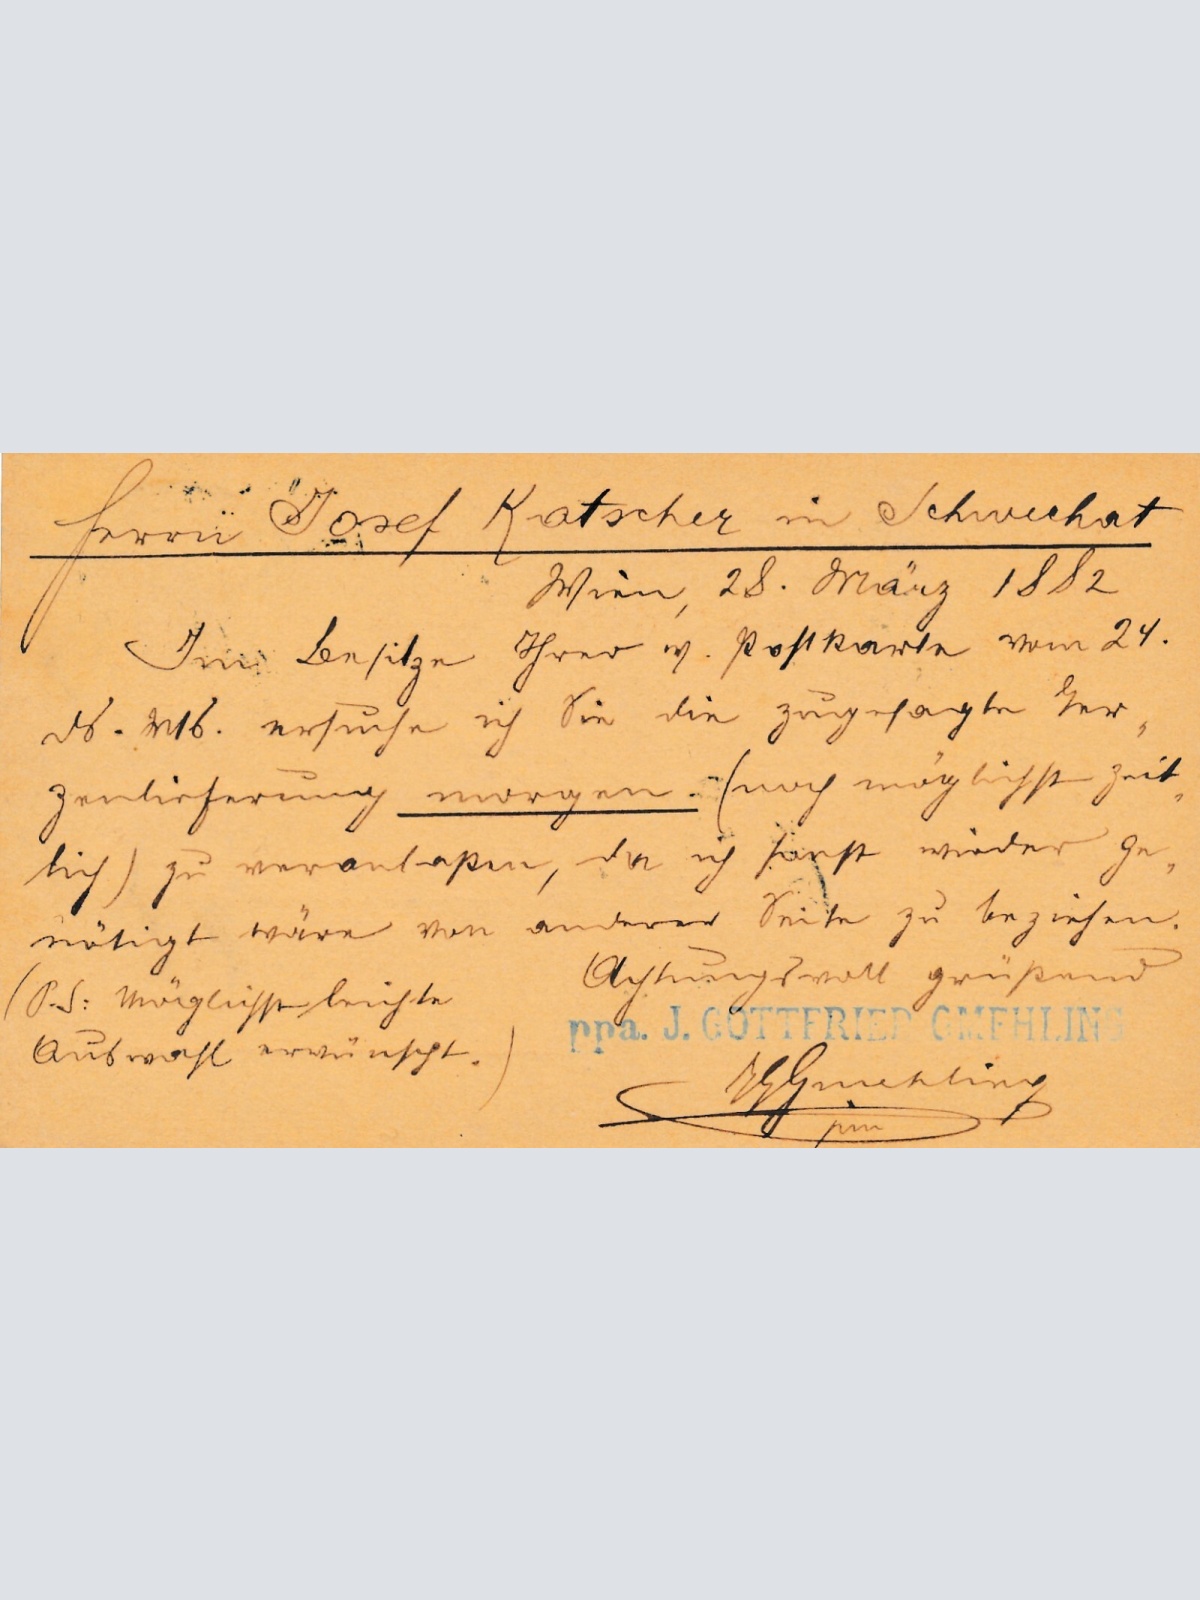 Herrn Josef Katscher in Schwechat
Wien, 28. März 1882
Im Besitze Ihrer w. Postkarte vom 24.
ds. Mts. ersuche ich Sie die zugesagte
zenlieferung morgen (noch möglichst zeit-
lich) zu veranlaßen, da ich sonst wieder ge-
nötigt wäre von anderer Seite zu beziehen.
Achtungsvoll grüßend
(P.S: Möglichst leichte
Auswahl erwünscht.)
ppa. J. GOTTFRIED GMEHLING
JGGmehling